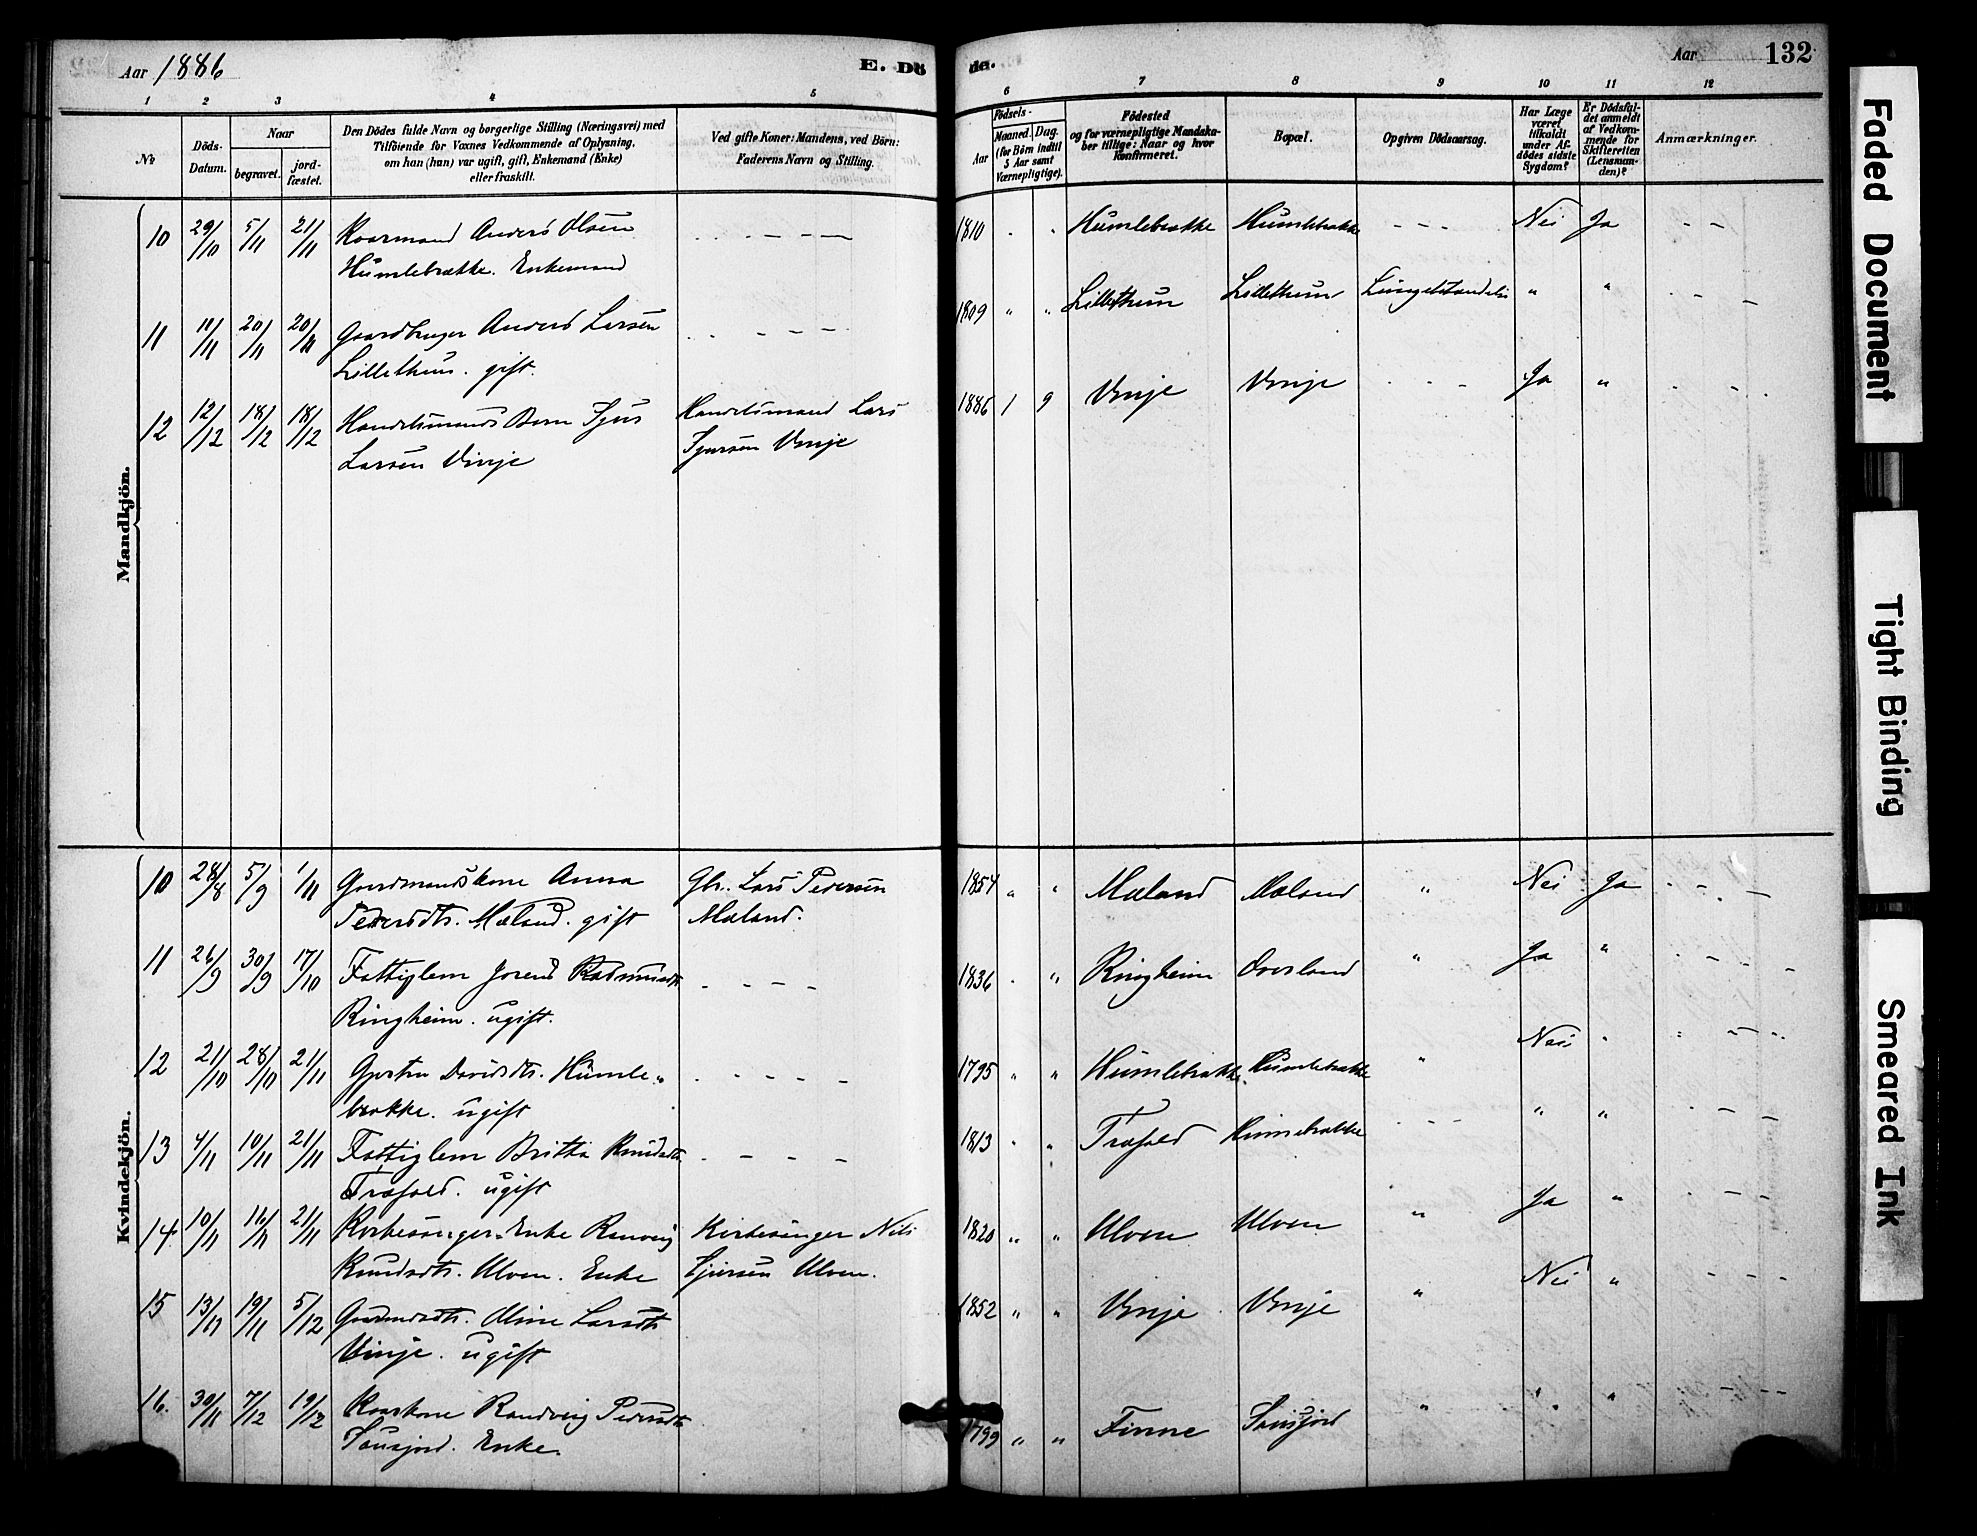 Aar 1886
E. Dö
de.
Aar
132
1 2 3 4 5 6 7 8 9 10 11 12
No
Döds-
Datum.
Naar
begravet.
jord-
fæstet.
Den Dödes fulde Navn og borgerlige Stilling (Næringsvei) med
Tilföiende for Voxnes Vedkommende af Oplysning,
om han (hun) var ugift, gift, Enkemand (Enke)
eller fraskilt.
Ved gifte Koner: Mandens, ved Börn:
Faderens Navn og Stilling.
Födsels-
Aar
Maaned. Dag.
(for Börn indtil
5 Aar samt
Værnepligtige).
Födested
og for værnepligtige Mandska-
ber tillige: Naar og hvor
konfirmeret.
Bopæl.
Opgiven Dödsaarsag.
Har Læge
været
tilkaldt
under Af-
dödes sidste
Sygdom?
Er Dödsfal-
det anmeldt
af Vedkom-
mende for
Skifteretten
(Lensman-
den)?
Anmærkninger.
Mandkjön.
10 29/10 5/11 21/11 Kaarmand Anders Olsen - - - - - 1810 " " Humlebrække Humlebrække - - - Nei Ja - -
Humlebrække. Enkemand
11 11/11 20/11 20/11 Gaardbruger Anders Larsen - - - - - 1809 " " Lillethun Lillethun Lungebetændelse " " - - -
Lillethun. gift.
12 12/12 18/12 18/12 Handelsmands Barn Sjur Handelsmand Lars 1886 1 9 Vinje Vinje - - - Ja " - -
Larsen Vinje Sjursen Vinje
Kvindekjön.
10 28/8 5/9 1/11 Gaardmandskone Anna Gbr. Lars Pedersen 1854 " " Mæland Mæland " Nei Ja - - - -
Pedersdtr. Mæland. gift Mæland.
11 26/9 30/9 17/10 Fattiglem Rasmusdtr - - - - 1836 " " Ringheim " Ja " - - - -
Ringheim. ugift.
12 21/10 28/10 21/11 Davidsdtr. Humle- - - - - - 1795 " " Humlebrække Humlebrække " Nei " - - -
brække. ugift
13 4/11 10/11 21/11 Fattiglem Britta Knudsdtr. - - - - 1813 " " - - - " " - - -
ugift
14. 10/11 16/11 21/11 Kirkesanger-Enke Ranveig Kirkesanger Nils 1820 " " Ulven Ulven " Ja " - - -
Knudsdtr. Ulven. Enke Ulven.
15 13/11 19/11 5/12 Larsdtr 1852 " " Vinje Vinje " Nei " - - - -
Vinje. ugift
16. 30/11 7/12 19/12 Kaarkone Randveig Pedersdtr 1799 " " Finne " " " - - -
Enke.
Faded Document
Tight Binding
Smeared Ink